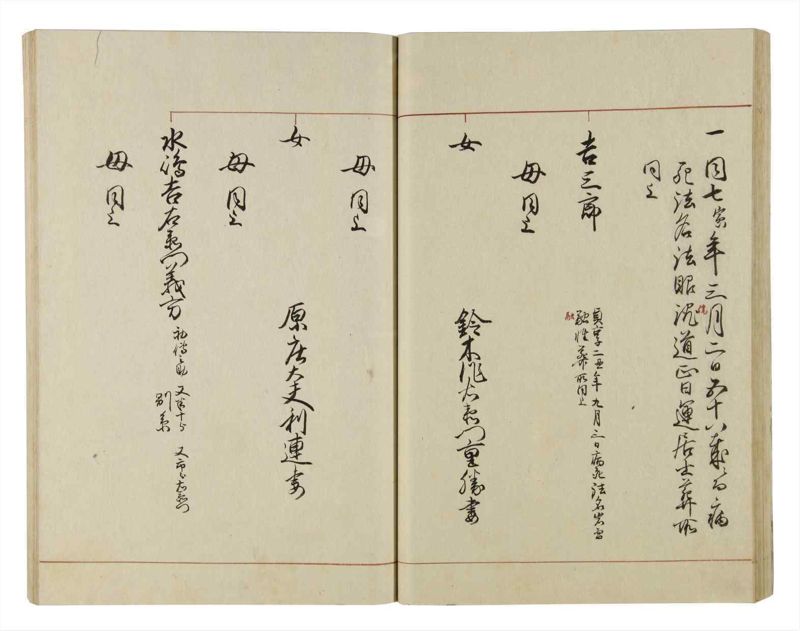 一同七寅年三月二日五十八歳而病
死法名法眼院道正日運居士葬所
同上
吉三郎
貞享二丑年九月三日病死法名
融性葬所同上
融
母同上
女
鈴木作右衛門重勝妻
母同上
女
原庄大夫利連妻
母同上
水嶋吉右衛門義方
別系
母同上